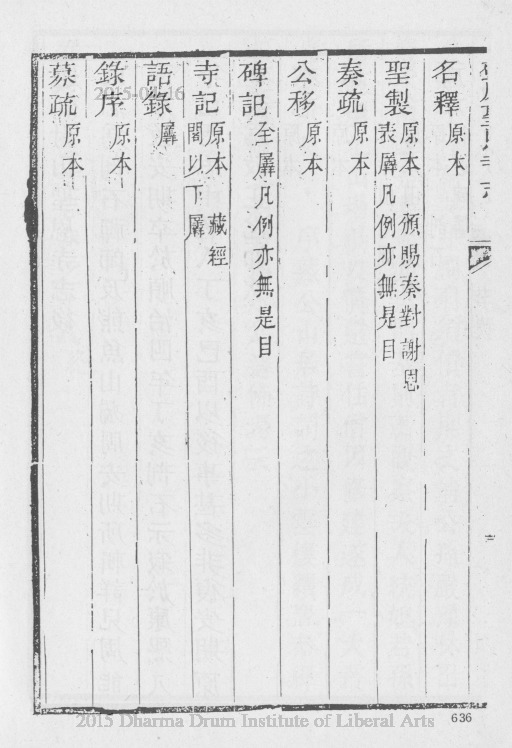 名釋 原本
聖製 原本 頒賜奏對謝恩
表廨凡例亦無是目
奏疏 原本
公移 原本
碑記 全廨凡例亦無是目
寺記 原本 藏經
閣以丁廨
語錄 廨
錄序 原本
募疏 原本
三
2015-04-16
2015 Dharma Drum Institute of Liberal Arts
636